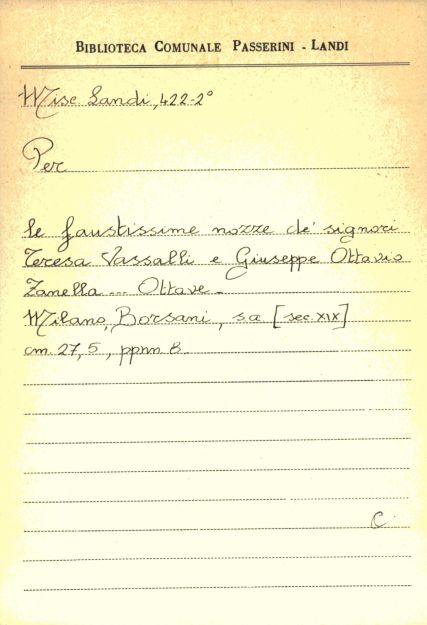 BIBLIOTECA COMUNALE PASSERINI - LANDI
Misc. Landi, 422-2°
Per
le faustissime nozze de' signori
Teresa Vassalli e Giuseppe Ottavio
Zanella ... Ottave.
Milano, Borsani, s.a [sec. XIX]
cm. 27,5, ppnn 8.
C